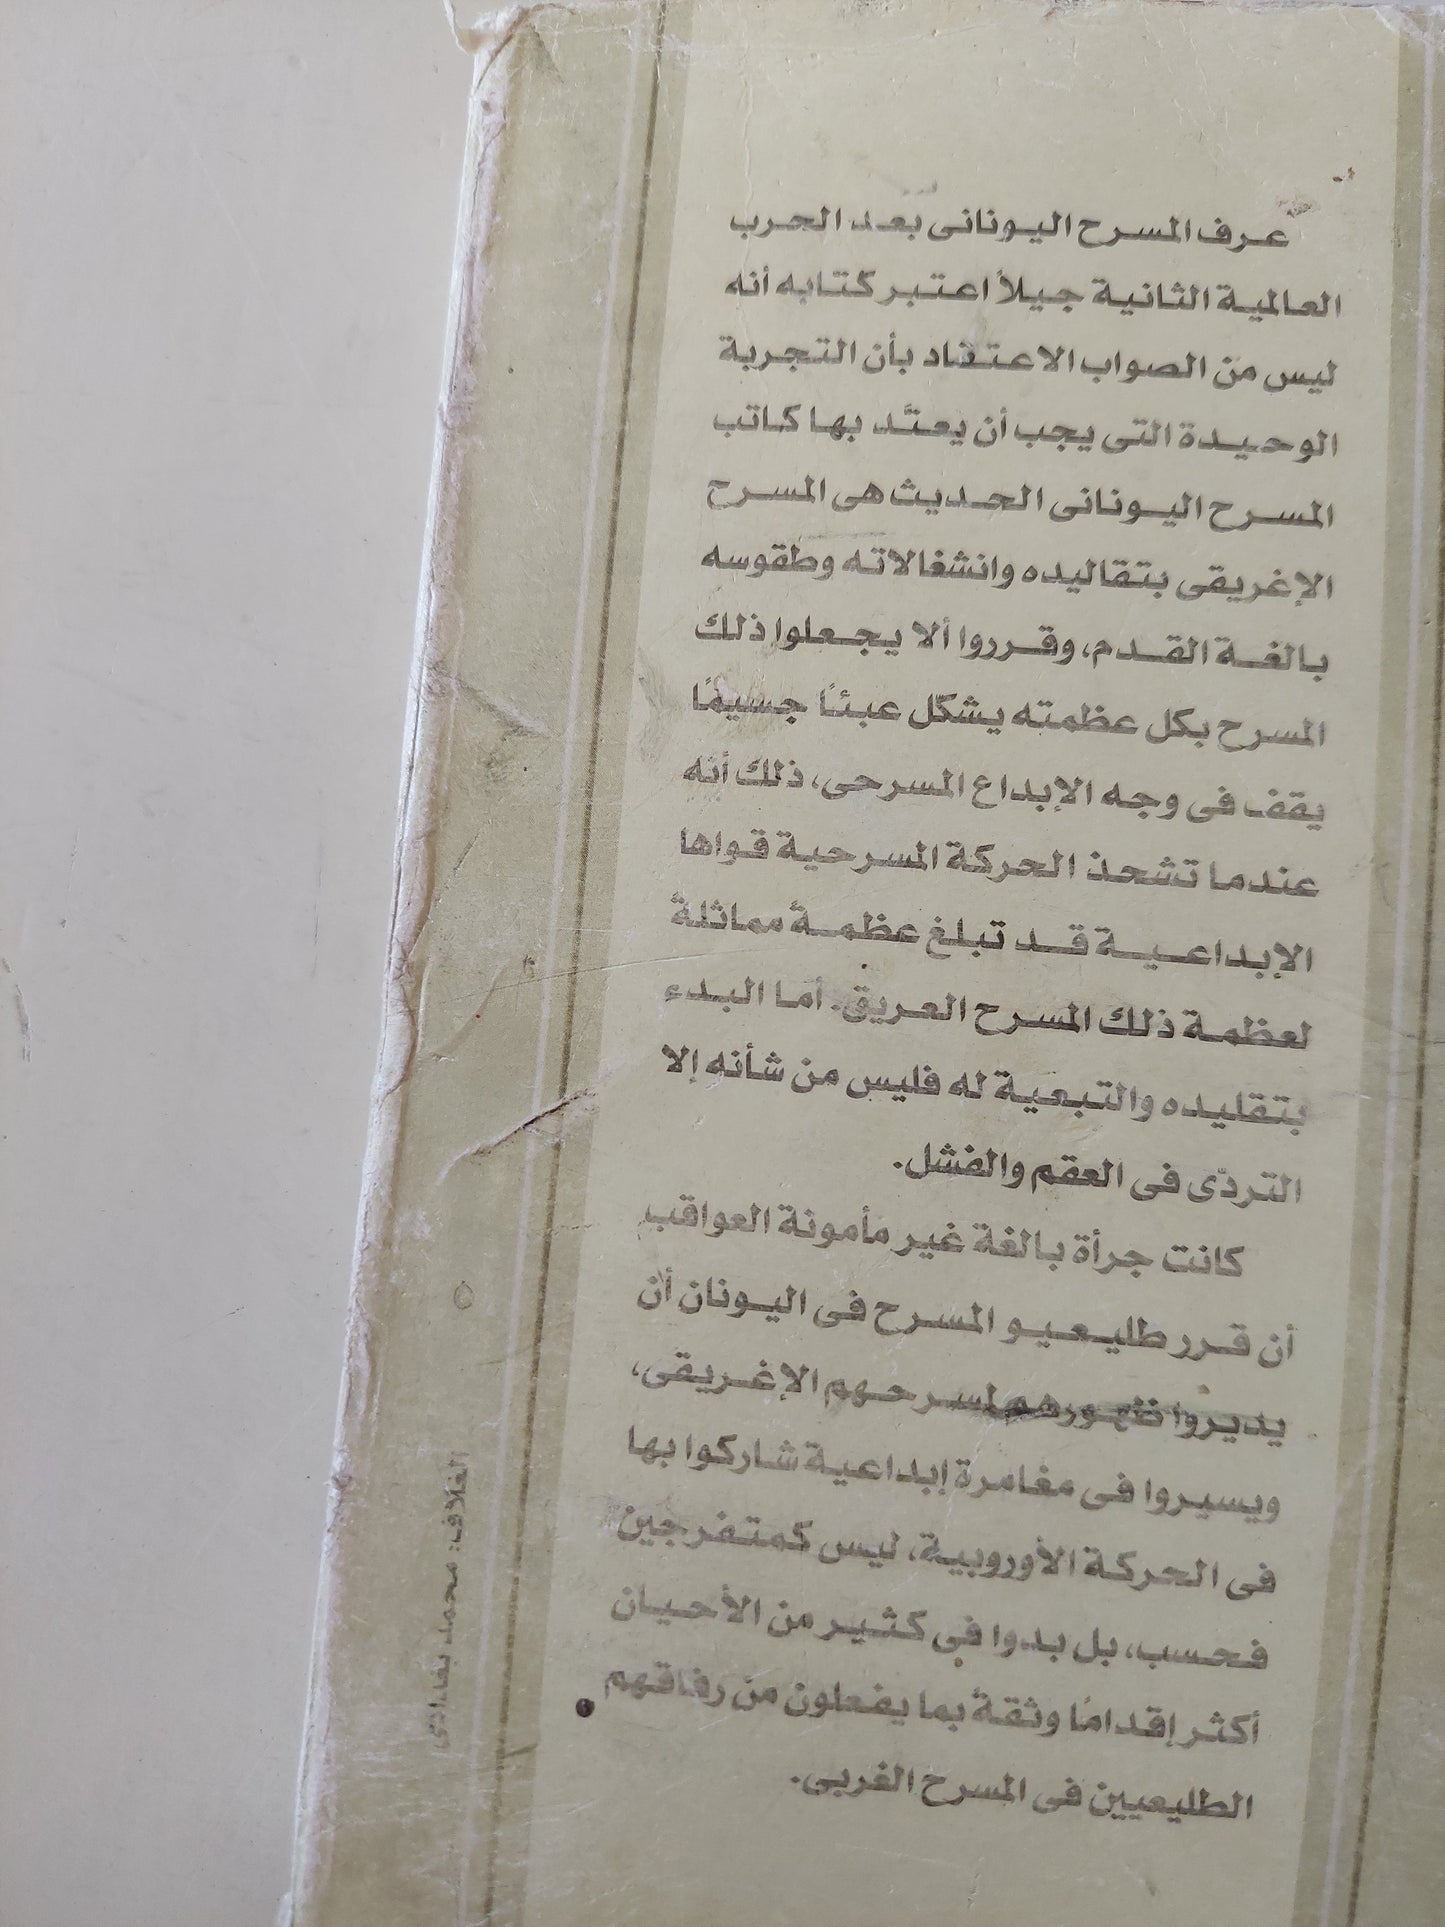 عرف المسرح اليونانى بعد الحرب
العالمية الثانية جيلاً اعتبر كتابه أنه
ليس من الصواب الاعتقاد بأن التجربة
الوحيدة التى يجب أن يعتّد بها كاتب
المسرح اليونانى الحديث هى المسرح
الإغريقى بتقاليده وانشغالاته وطقوسه
بالغة القدم، وقرروا ألا يجعلوا ذلك
المسرح بكل عظمته يشكّل عبئًا جسيمًا
يقف فى وجه الإبداع المسرحى، ذلك أنه
عندما تشحذ الحركة المسرحية قواها
الإبداعية قد تبلغ عظمةً مماثلة
لعظمة ذلك المسرح العريق. أما البدء
بتقليده والتبعية له فليس من شأنه إلا
التردّى فى العقم والفشل.
كانت جرأة بالغة غير مأمونة العواقب
أن قرر طليعيو المسرح فى اليونان أن
يديروا ظهورهم لمسرحهم الإغريقى،
ويسيروا فى مغامرة إبداعية شاركوا بها
فى الحركة الأوروبية، ليس كمتفرجين
فحسب، بل بدوا فى كثير من الأحيان
أكثر إقدامًا وثقةً بما يفعلون من رفاقهم
الطليعيين فى المسرح الغربى.
الغلاف: محمد بغدادى